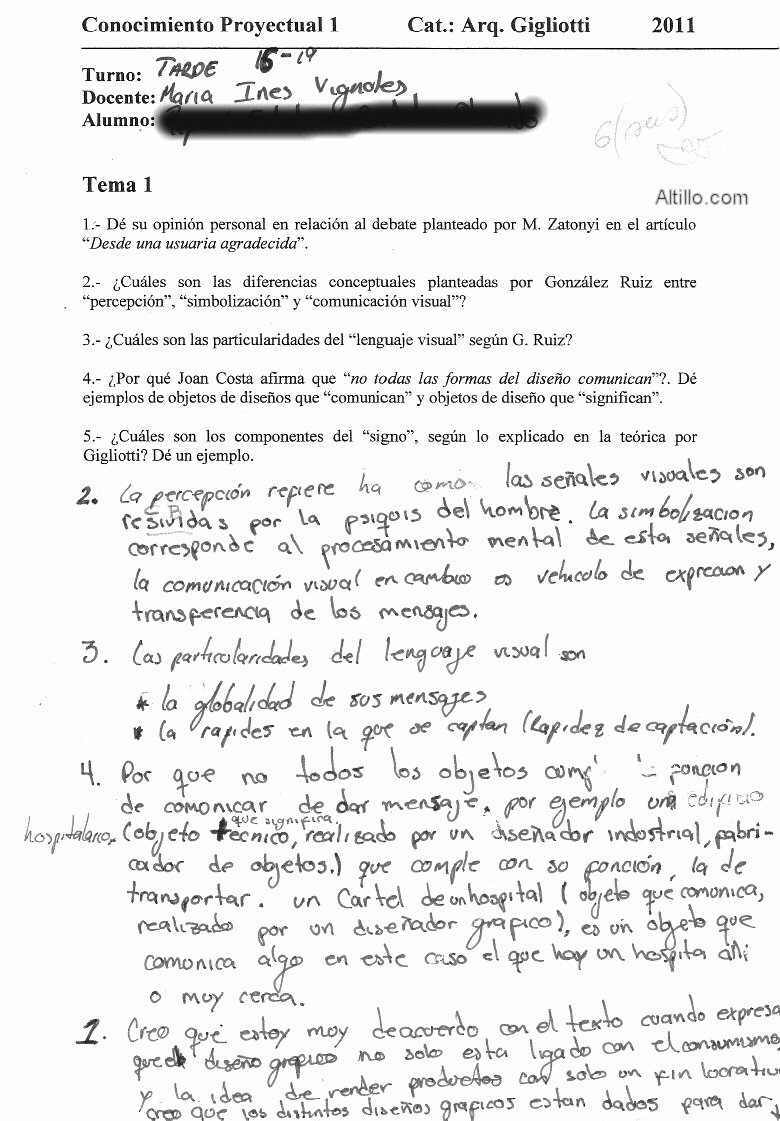 Conocimiento Proyectual 1 Cat.: Arq. Gigliotti 2011
Turno: TARDE 15-19
Docente: Maria Ines Vignoles
Alumno:
6 (seis)
Tema 1
Altillo.com
1.- Dé su opinión personal en relación al debate planteado por M. Zatonyi en el artículo
“Desde una usuaria agradecida”.
2.- ¿Cuáles son las diferencias conceptuales planteadas por González Ruiz entre
“percepción”, “simbolización” y “comunicación visual”?
3.- ¿Cuáles son las particularidades del “lenguaje visual” según G. Ruiz?
4.- ¿Por qué Joan Costa afirma que “no todas las formas del diseño comunican”?. Dé
ejemplos de objetos de diseños que “comunican” y objetos de diseño que “significan”.
5.- ¿Cuáles son los componentes del “signo”, según lo explicado en la teórica por
Gigliotti? Dé un ejemplo.
2. La percepción refiere ha como las señales visuales son
resividas por la psiquis del hombre. La simbolizacion
corresponde al procesamiento mental de esta señales,
la comunicación visual en cambio es vehiculo de exprecion y
transferencia de los mensajes.
3. Las particularidades del lenguaje visual son
* la globalidad de sus mensajes
* la rapides en la que se captan (Rapidez de captación).
4. Por que no todos los objetos funcion
de comunicar de dar mensaje, por ejemplo un edificio
hospitalario, (objeto técnico, que significa, realizado por un diseñador industrial, fabri-
cador de objetos.) que comple con so función, la de
transportar. un Cartel de un hospital (objeto que comunica,
realizado por un diseñador grafico), es un objeto que
comunica algo en este caso el que hay un hospita alli
o muy cerca.
1. Creo que estoy muy deacuerdo con el texto cuando expresa
que el diseño grafico no solo esta ligado con el consumismo,
y la idea de vender productos con solo un fin lucrativo
creo que los distintos diseños graficos estan dados para dar